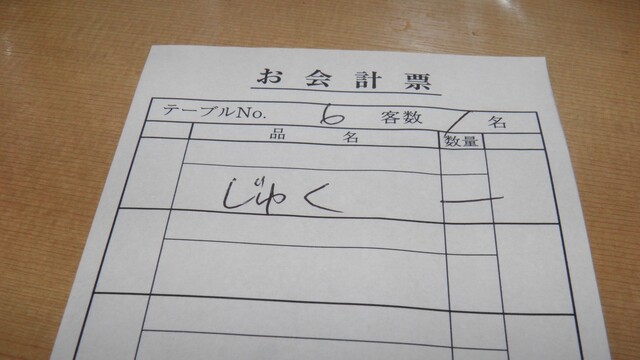 お会計票
テーブルNo. 6 客数 1 名
品名 数量
じゅく 一